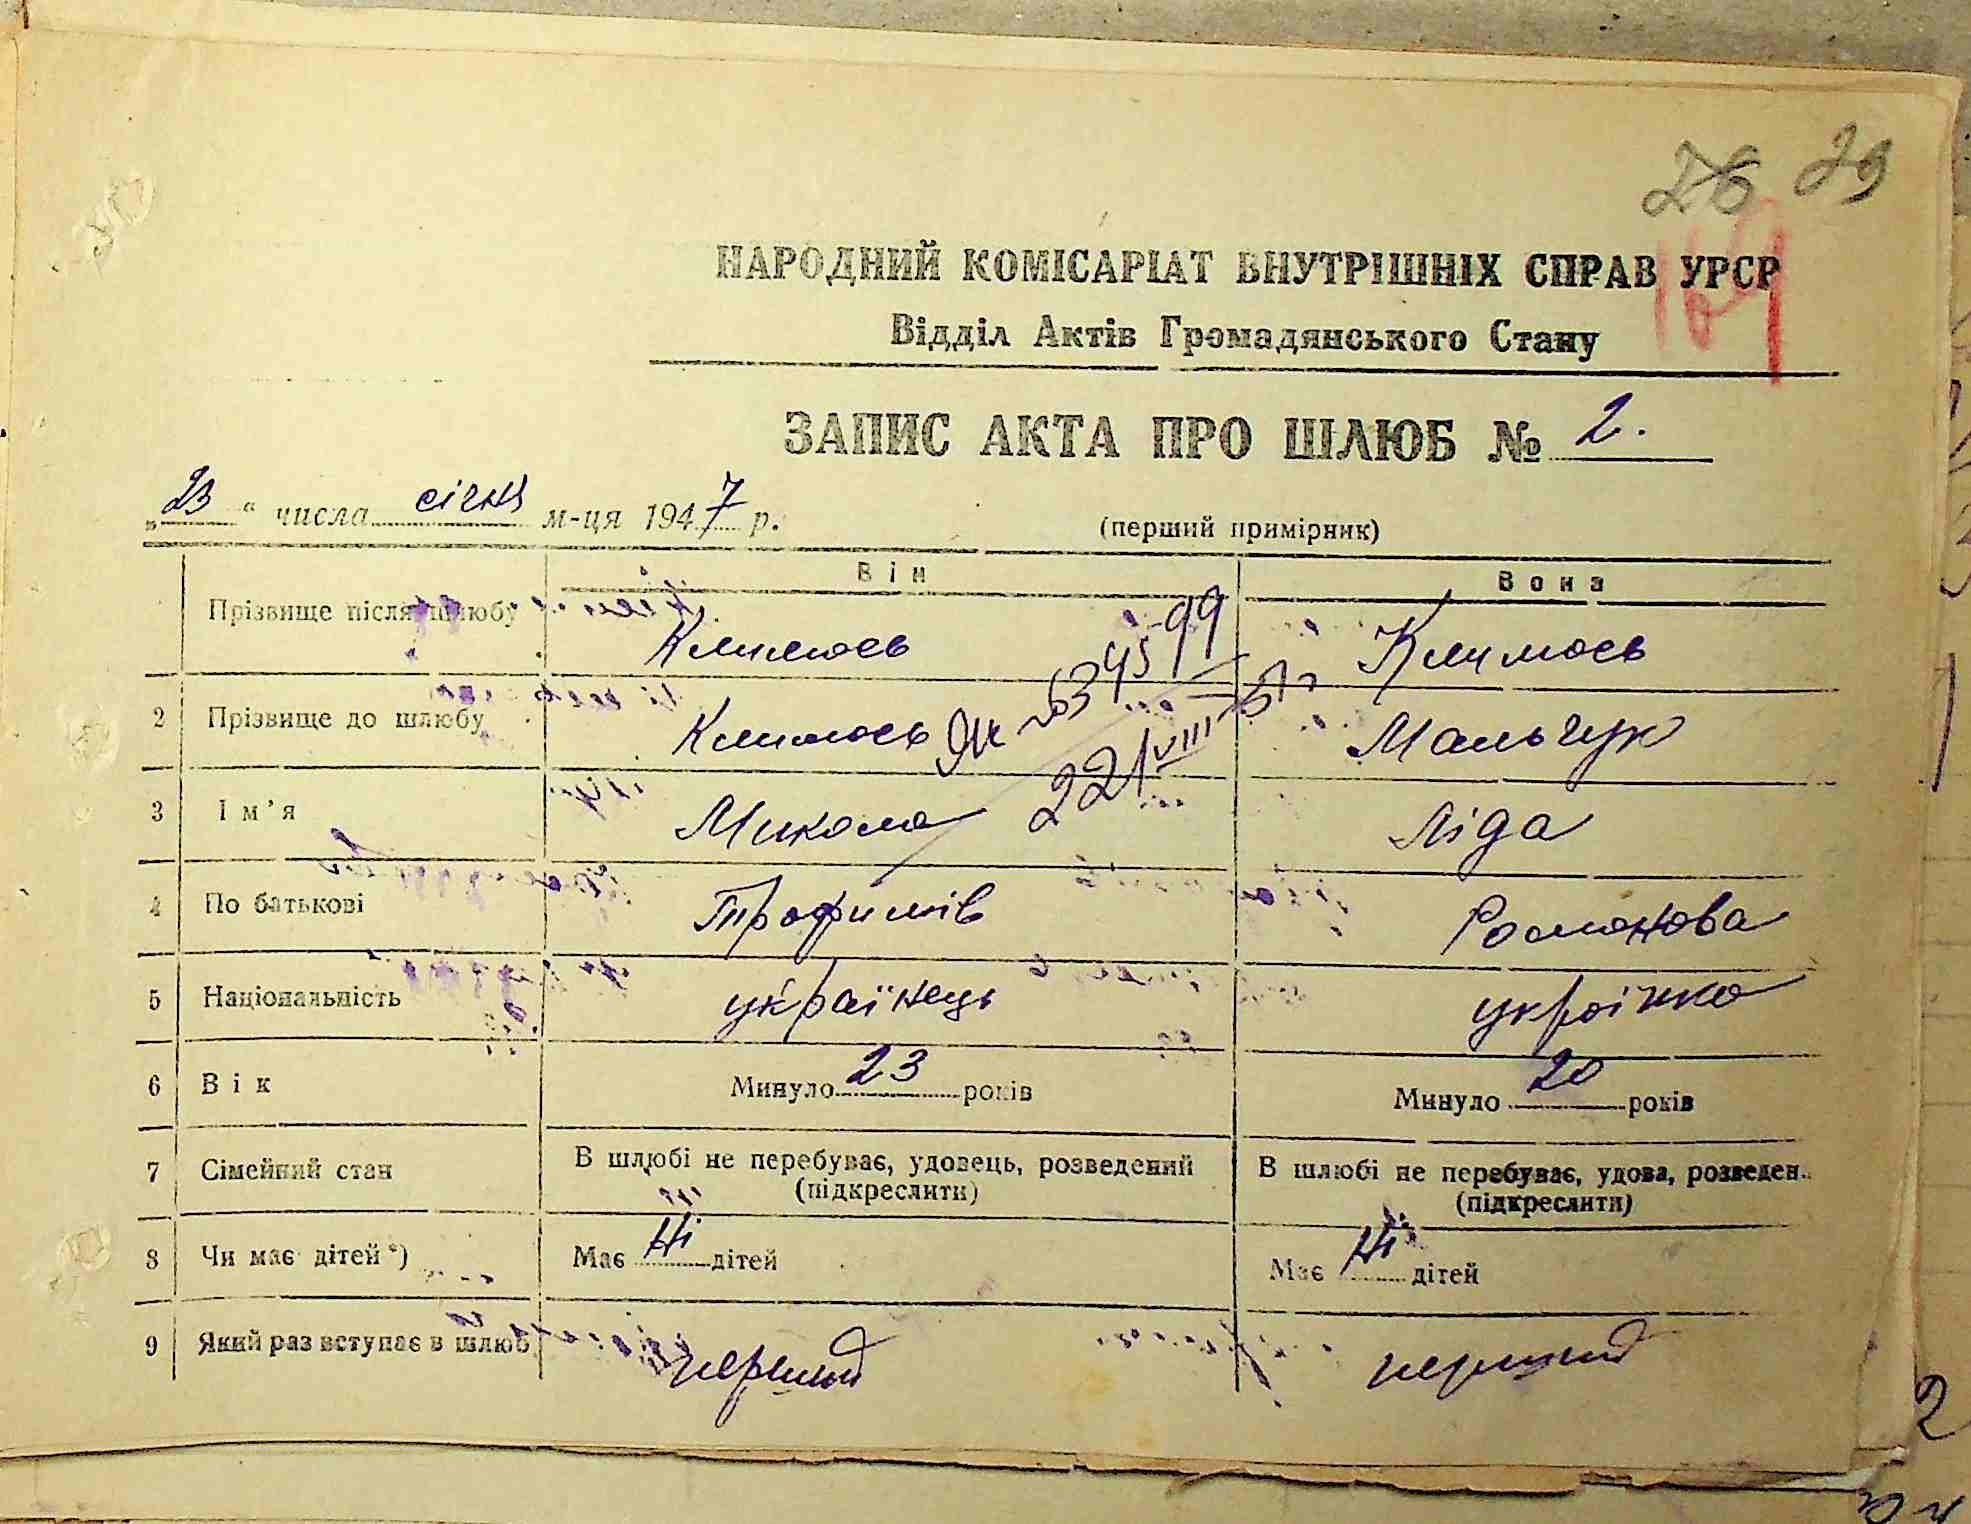 26 29
169
НАРОДНИЙ КОМІСАРІАТ ВНУТРІШНІХ СПРАВ УРСР
Відділ Актів Громадянського Стану
ЗАПИС АКТА ПРО ШЛЮБ № 2.
„23“ числа січня м-ця 1947 р. (перший примірник)
Він Вона
Прізвище після шлюбу Климюсь Климюсь
2 Прізвище до шлюбу Климюсь Мальчук
3 Ім'я Микола Ліда
4 По батькові Трофимів Романова
5 Національність українець українка
6 Вік Минуло 23 років Минуло 20 років
7 Сімейний стан В шлюбі не перебуває, удовець, розведений (підкреслити) В шлюбі не перебуває, удова, розведен. (підкреслити)
8 Чи має дітей*) Має ні дітей Має ні дітей
9 Який раз вступає в шлюб перший перший